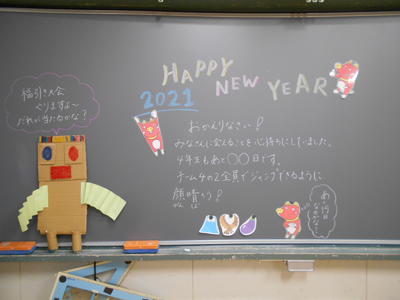 HAPPY
NEW YEAR
2021
福引き大会
やりますよ〜
だれが当たるかな？
おかえりなさい！
みなさんに会えることを心待ちにしていました。
4年生もあと〇〇日です。
チーム4の2全員でジャンプできるように
顔晴ろう！
がんば
あと何日